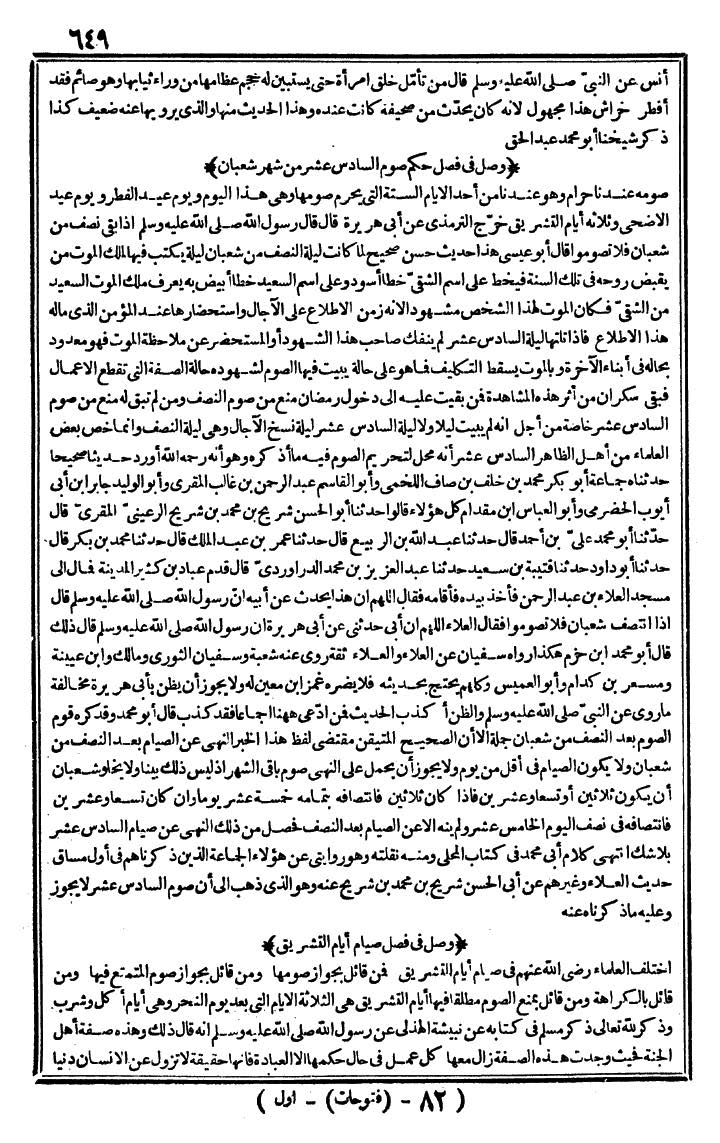 ٦٤٩
أنس عن النبيّ صلى الله عليه وسلم قال من تأمّل خلق امرأة حتى يستبين له حجم عظامها من وراء ثيابها وهو صائم فقد
أفطر خراش هذا مجهول لانه كان يحدّث من صحيفة كانت عنده وهذا الحديث منها والذى يرويها عنه ضعيف كذا
ذكر شيخنا أبو محمد عبد الحق
﴿وصل فى فصل حكم صوم السادس عشر من شهر شعبان﴾
صومه عندنا حرام وهو عندنا من أحد الايام الستة التى يحرم صومها وهى هذا اليوم ويوم عيد الفطر ويوم عيد
الاضحى وثلاثه أيام التشريق خرّج الترمذى عن أبى هريرة قال قال رسول الله صلى الله عليه وسلم اذا بقى نصف من
شعبان فلا تصوموا قال أبو عيسى هذا حديث حسن صحيح لما كانت ليلة النصف من شعبان ليلة يكتب فيها الملك الموت من
يقبض روحه فى تلك السنة فيخط على اسم الشقىّ خطا أسود وعلى اسم السعيد خطا أبيض به يعرف ملك الموت السعيد
من الشقىّ فكان الموت لهذا الشخص مشهودا لانه زمن الاطلاع على الآجال واستحضارها عند المؤمن الذى ماله
هذا الاطلاع فاذا تلتها ليلة السادس عشر لم ينفك صاحب هذا الشهود أو المستحضر عن ملاحظة الموت فهو معدود
بحاله فى أبناء الآخرة وبالموت يسقط التكليف فما هو على حالة يبيت فيها الصوم لشهوده حالة الصفة التى تقطع الاعمال
فبقى سكران من أثر هذه المشاهدة فمن بقيت عليه الى دخول رمضان منع من صوم النصف ومن لم تبق له منع من صوم
السادس عشر خاصة من أجل انه لم يبيت ليلا ولا ليلة السادس عشر ليلة نسخ الآجال وهى ليلة النصف وانما خص بعض
العلماء من أهل الظاهر السادس عشر أنه محل لتحريم الصوم فيه ما أذكره وهو أنه رحمه الله أورد حديثا صحيحا
حدثناه جماعة أبو بكر محمد بن خلف بن صاف اللخمى وأبو القاسم عبد الرحمن بن غالب المقرى وأبو الوليد جابر ابن أبى
أيوب الحضرمى وأبو العباس ابن مقدام كل هؤلاء قالوا حدثنا أبو الحسن شريح بن محمد بن شريح الرعينىّ المقرىّ قال
حدّثنا أبو محمد علىّ بن أحمد قال حدثنا عبد الله بن الربيع قال حدثنا عمر بن عبد الملك قال حدثنا محمد بن بكر قال
حدثنا أبو داود حدثنا قتيبة بن سعيد حدثنا عبد العزيز بن محمد الدراوردىّ قال قدم عباد بن كثير المدينة فمال الى
مسجد العلاء بن عبد الرحمن فأخذ بيده فأقامه فقال اللهم ان هذا يحدث عن أبيه انّ رسول الله صلى الله عليه وسلم قال
اذا انتصف شعبان فلا تصوموا فقال العلاء اللهم ان أبى حدثنى عن أبى هريرة ان رسول الله صلى الله عليه وسلم قال ذلك
قال أبو محمد ابن حزم هكذا رواه سفيان عن العلاء والعلاء ثقة روى عنه شعبة وسفيان الثورى ومالك وابن عيينة
ومسعر بن كدام وأبو العميس وكلهم يحتج بحديثه فلا يضره غمز ابن معين له ولا يجوز أن يظن بأبى هريرة مخالفة
ماروى عن النبىّ صلى الله عليه وسلم والظن أكذب الحديث فمن ادّعى ههنا اجماعا فقد كذب قال أبو محمد وقد كره قوم
الصوم بعد النصف من شعبان جملة الا أن الصحيح المتيقن مقتضى لفظ هذا الخبر النهى عن الصيام بعد النصف من
شعبان ولا يكون الصيام فى أقل من يوم ولا يجوز أن يحمل على النهى صوم باقى الشهر اذ ليس ذلك بينا ولا يخلو شعبان
أن يكون ثلاثين أو تسعا وعشرين فاذا كان ثلاثين فانتصافه بتمامه خمسة عشر يوما وان كان تسعا وعشرين
فانتصافه فى نصف اليوم الخامس عشر ولم ينه الا عن الصيام بعد النصف فحصل من ذلك النهى عن صيام السادس عشر
بلا شك انتهى كلام أبى محمد فى كتاب المحلى ومنه نقلته وهو روايتى عن هؤلاء الجماعة الذين ذكرناهم فى أول مساق
حديث العلاء وغيرهم عن أبى الحسن شريح بن محمد بن شريح عنه وهو الذى ذهب الى أن صوم السادس عشر لا يجوز
وعليه ماذكرناه عنه
﴿وصل فى فصل صيام أيام التشريق﴾
اختلف العلماء رضى الله عنهم فى صيام أيام التشريق فمن قائل بجواز صومها ومن قائل بجواز صوم المتمتع فيها ومن
قائل بالكراهة ومن قائل بمنع الصوم مطلقا فيها أيام التشريق هى الثلاثة الايام التى بعد يوم النحر وهى أيام أكل وشرب
وذكر لله تعالى ذكر مسلم فى كتابه عن نبيشة الهذلى عن رسول الله صلى الله عليه وسلم انه قال ذلك وهذه صفة أهل
الجنة فحيث وجدت هذه الصفة زال معها كل عمل فى حال حكمها الا العبادة فانها حقيقة لا تزول عن الانسان دنيا
( ٨٢ - (فتوحات) - اول )